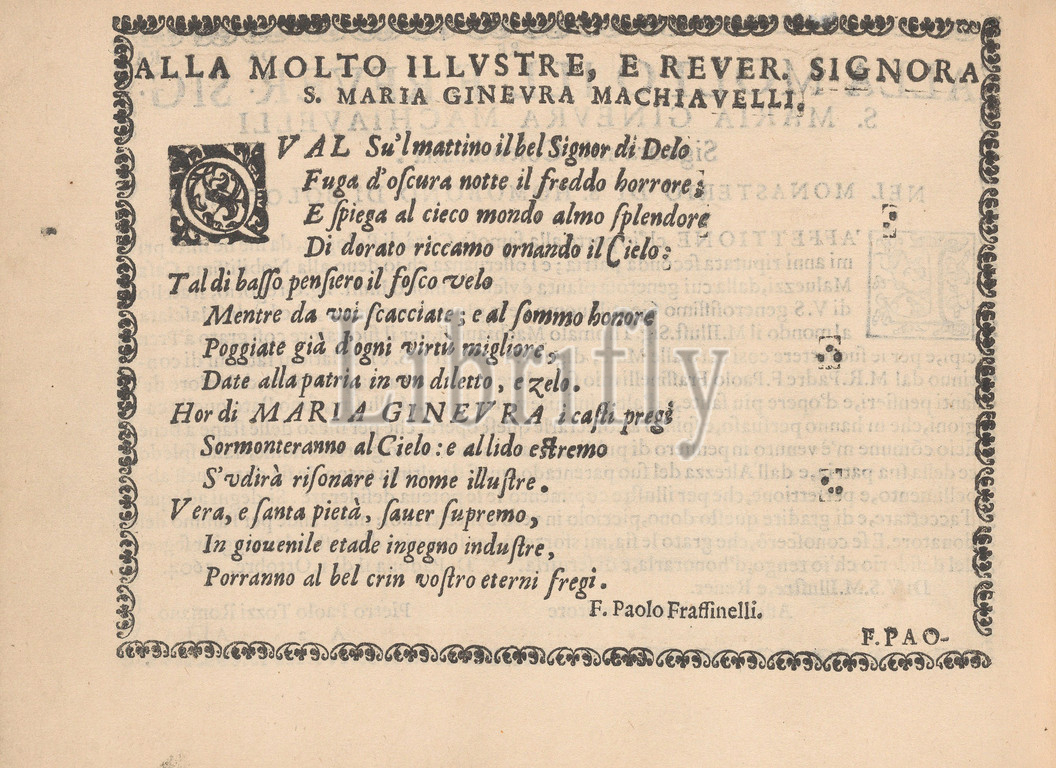 ALLA MOLTO ILLVSTRE, E REVER. SIGNORA
S. MARIA GINEVRA MACHIAVELLI.
QVAL Su'l mattino il bel Signor di Delo
Fuga d'oſcura notte il freddo horrore;
E ſpiega al cieco mondo almo ſplendore
Di dorato riccamo ornando il Cielo:
Tal di baſſo penſiero il foſco velo
Mentre da voi ſcacciate; e al ſommo honore
Poggiate già d'ogni virtù migliore,
Date alla patria in vn diletto, e zelo.
Hor di MARIA GINEVRA i caſti pregi
Sormonteranno al Cielo: e al lido eſtremo
S'vdirà riſonare il nome illuſtre.
Vera, e ſanta pietà, ſauer ſupremo,
In giouenile etade ingegno induſtre,
Porranno al bel crin voſtro eterni fregi.
F. Paolo Fraffinelli.
F. PAO-
Librifly